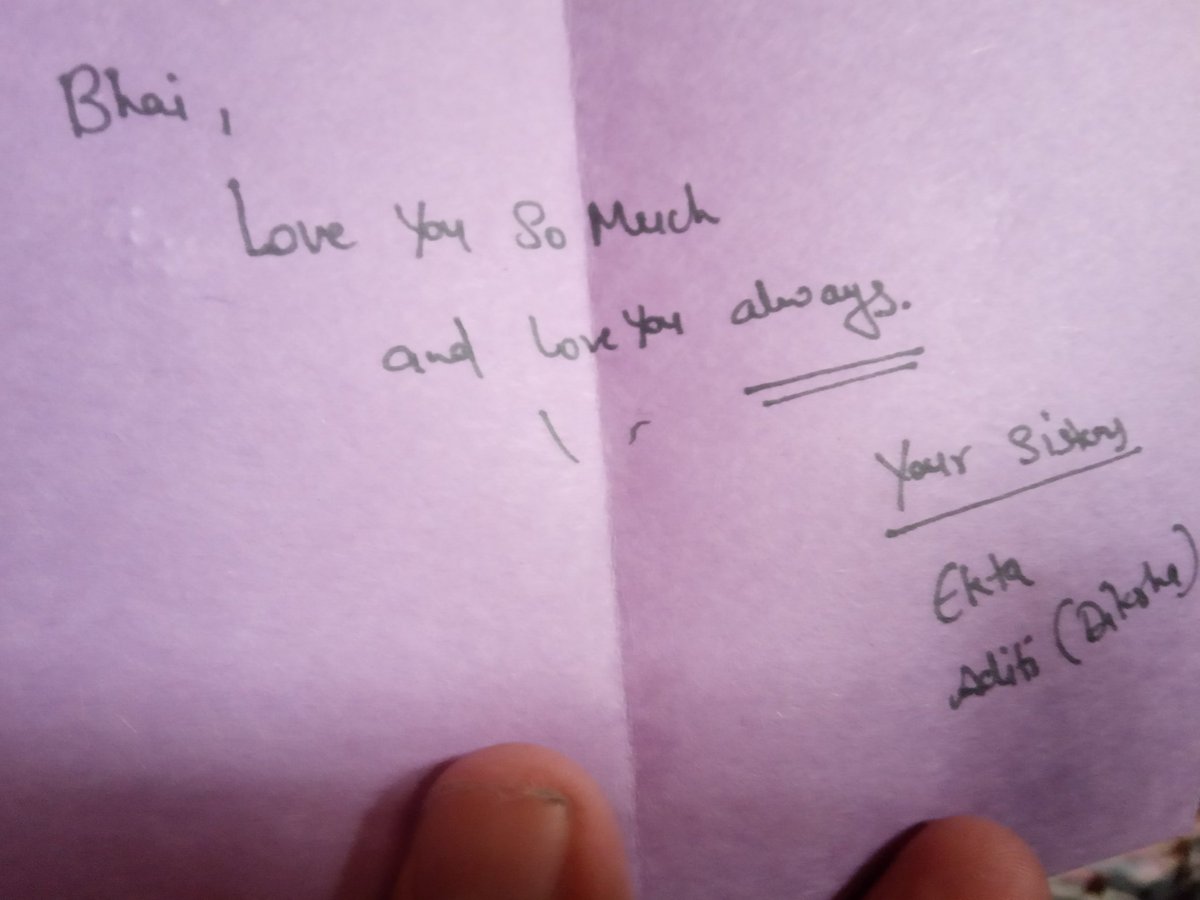 Bhai,
Love You So Much
and love you always.
Your Sisters
Ekta
Aditi (Diksha)